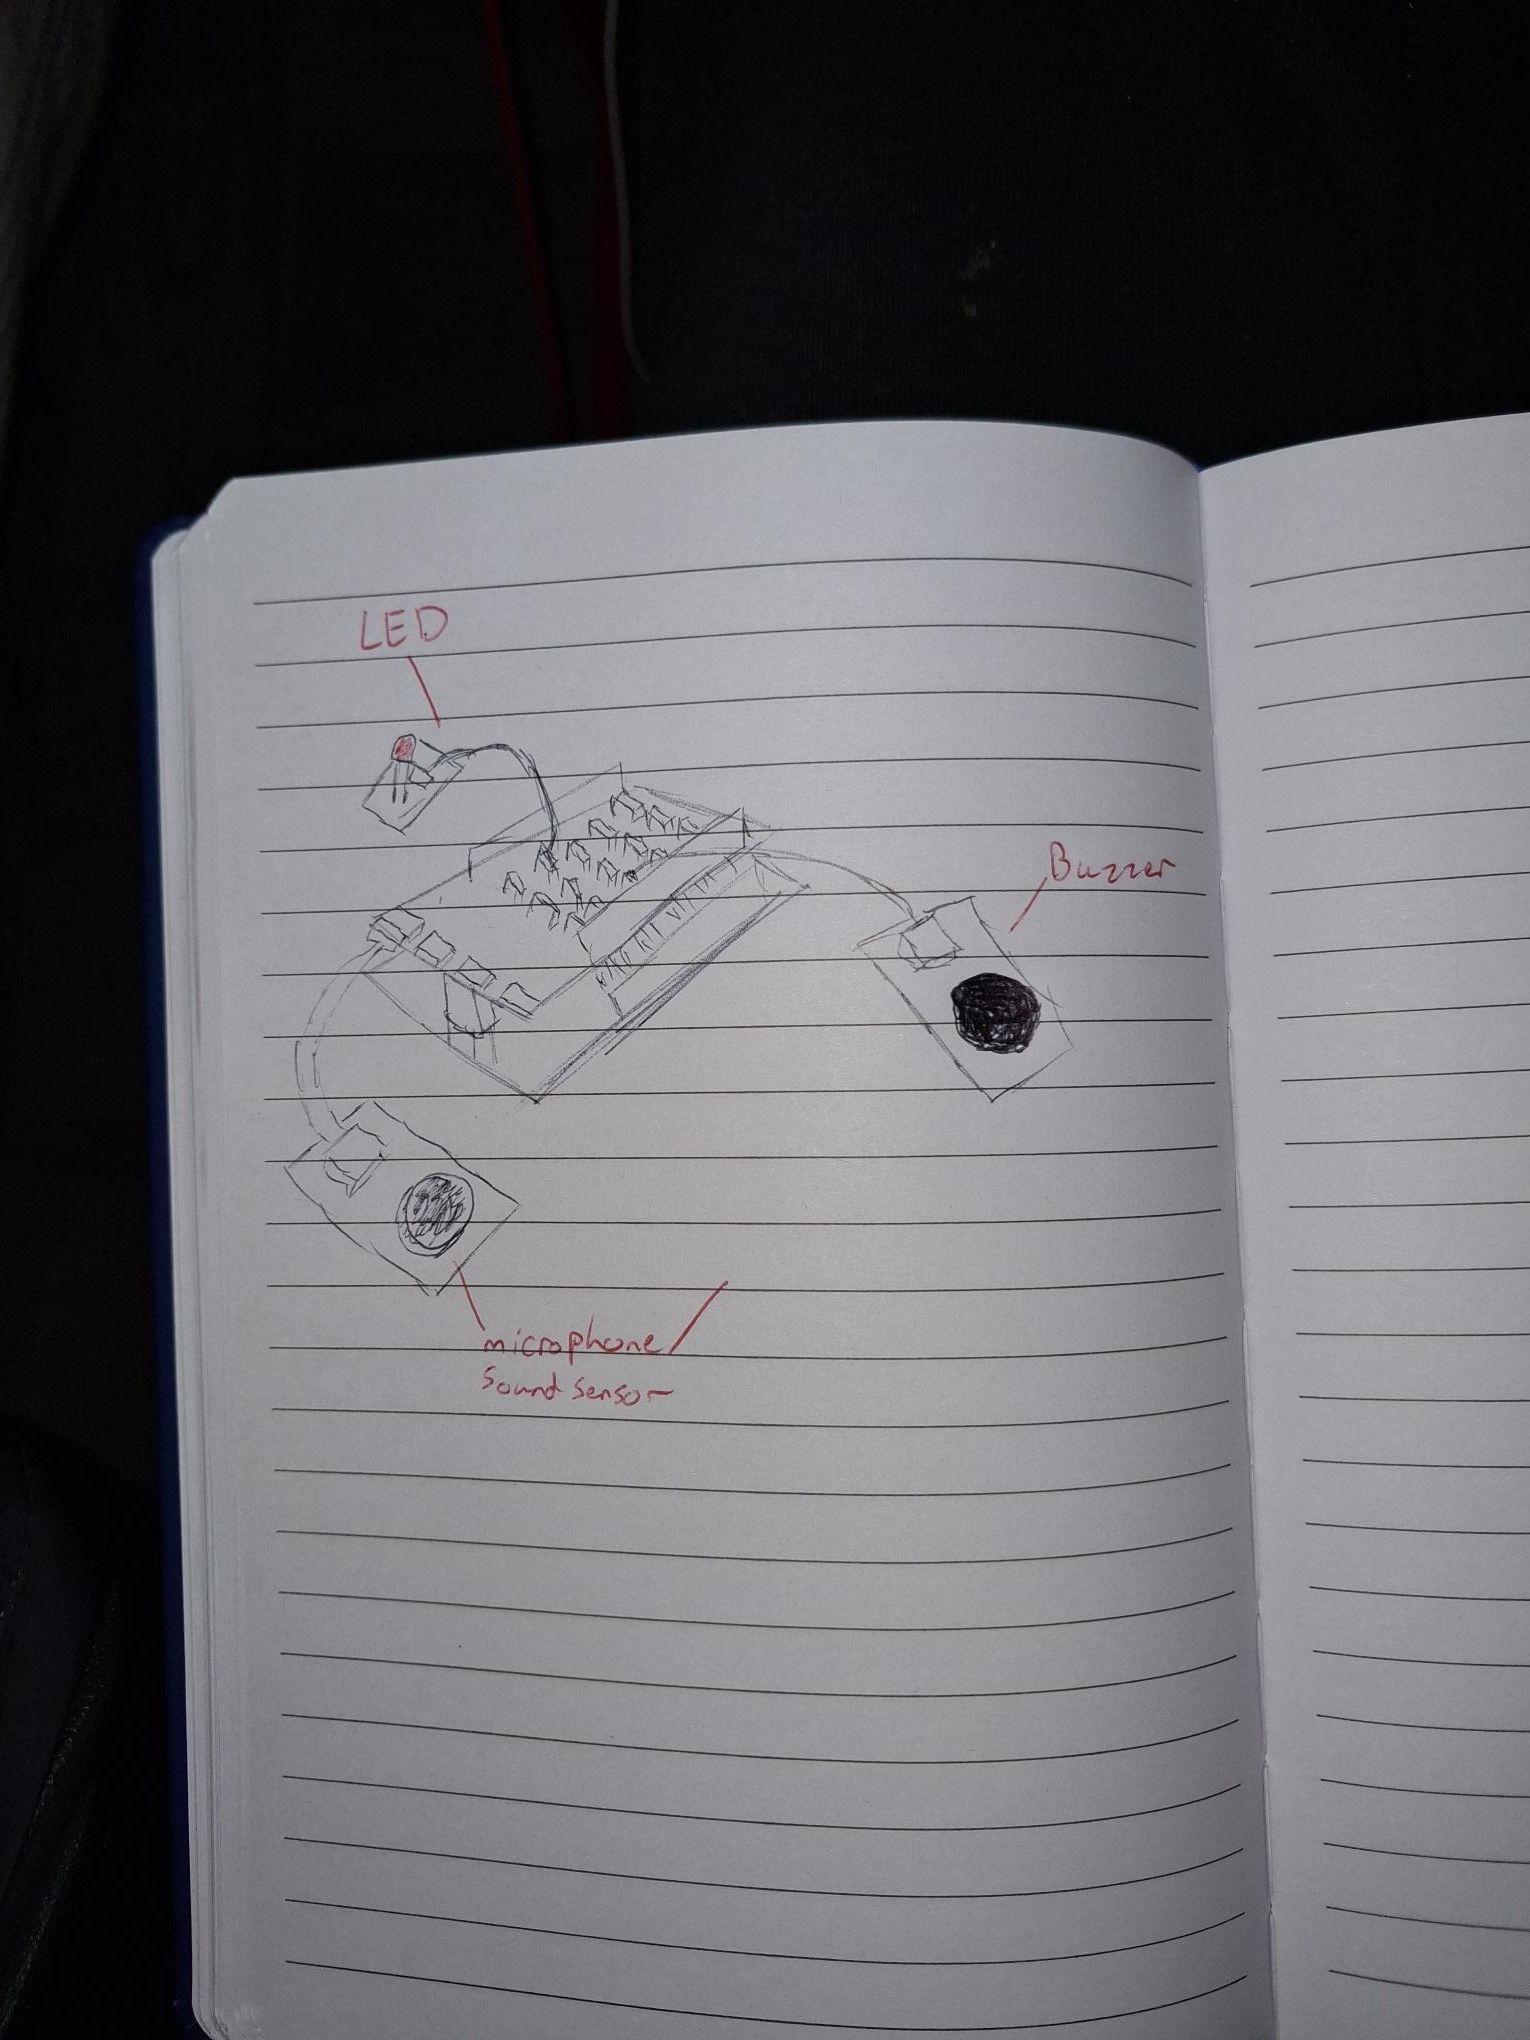 LED
Buzzer
microphone/
sound sensor